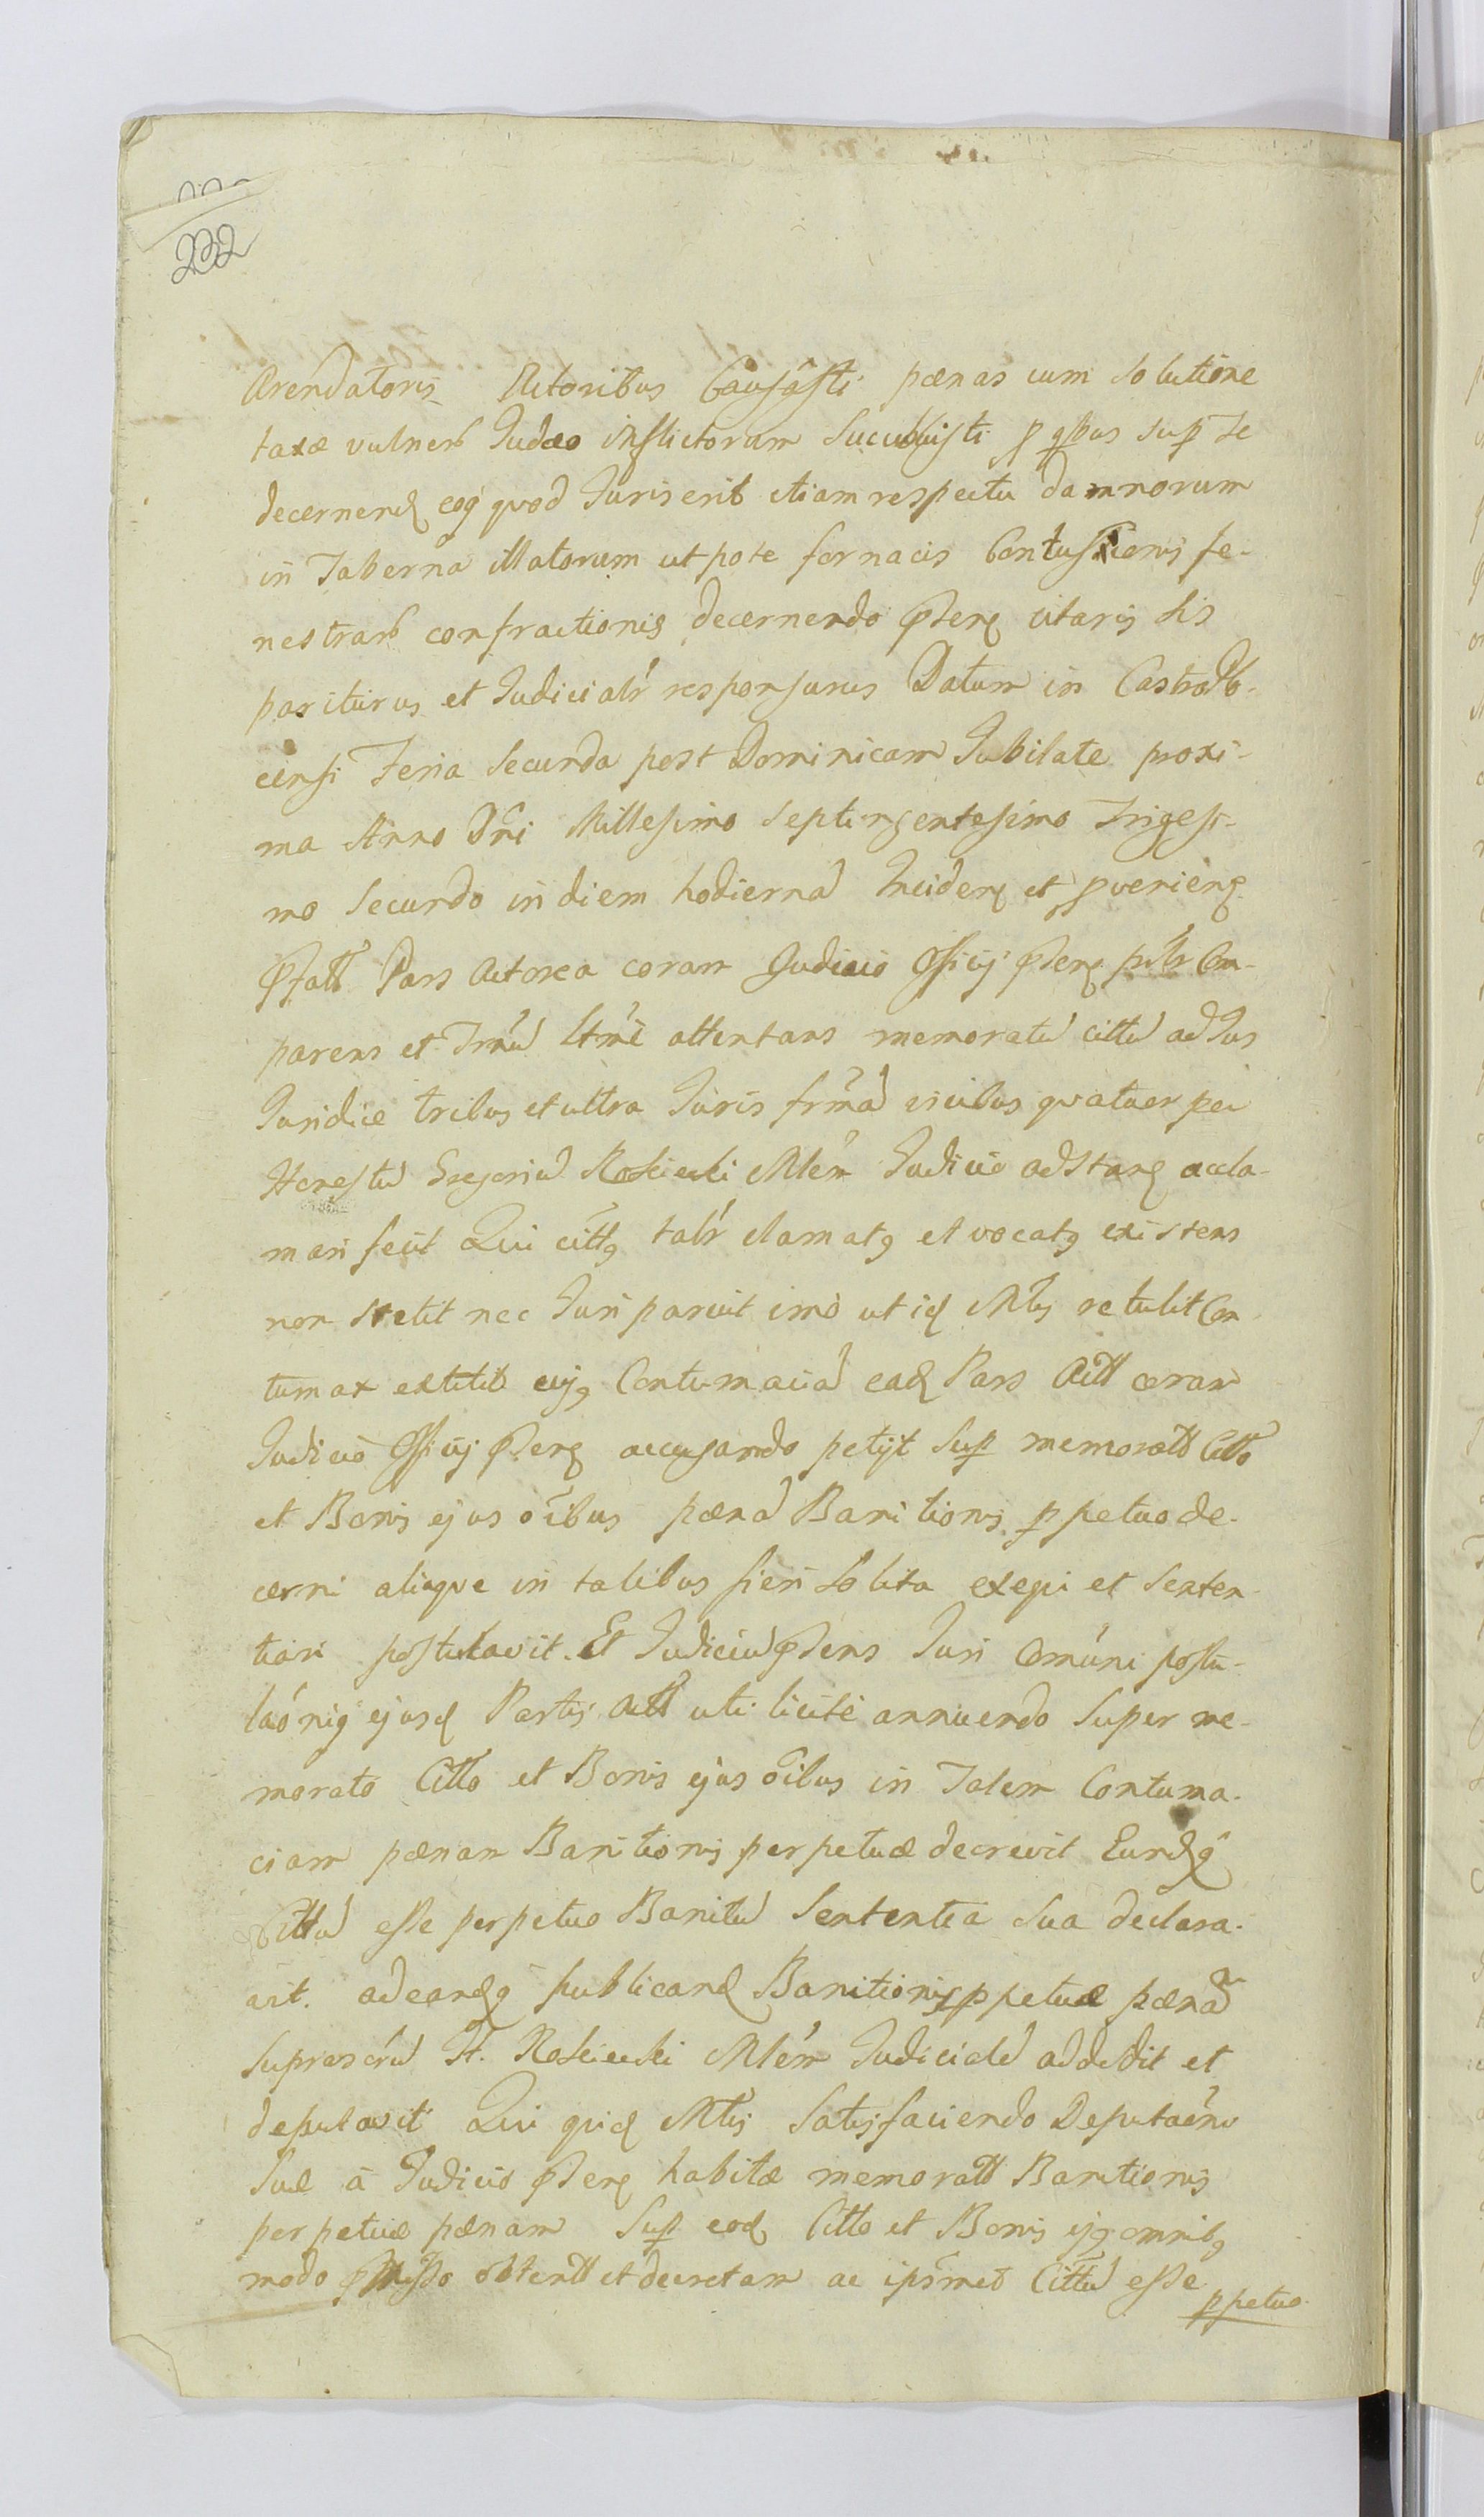 232
Arendatoris Actoribus Causasti pænas cum solutione
taxæ vulnerū Judæo inflictorum succubuisti p qbus sup Te
decernend eoq quod Juris erit etiam respectu damnorum
in Taberna illatorum utpote fornacis Contusionis fe-
nestrarū confractionis decernendo pnte citaris sis
pariturus et Judicialr responsurus Datum in Castro
censi Feria Secunda post Dominicam Jubilate proxi-
ma Anno Dni Millesimo Septingentesimo Trigesi-
mo Secundo in diem hodiernā Inciden et pvenien
Pfatt Pars Actorea coram Judicio Officij Psen pslr Com-
parens et Trnū ltmè attentans memoratū cittū ad Jus
Juridice tribus et ultra Juris frmā vicibus quatuor per
Honestū Gregoriū Rościecki Mlem Judicio adstan accla-
mari fecit Qui citt9 talr clamat9 et vocat9 existens
non stetit nec Juri paruit imò ut id Mlis retulit Con-
tumax extitit cuj9 Contumaciā ead Pars Actt coram
Judicio Officij Psen accusando petijt Sup memoratt Citto
et Bonis ejus oibus pænā Banitionis ppetuo de-
cerni aliaque in talibus fieri solita exequi et Senten-
tiari postulavit. Et Judiciū Psens Juri Comuni postu-
laónig ejusd Partis Actt uti licitè annuendo Super me-
morato Citto et Bonis ejus oibus in Talem Contuma-
ciam pænam Banitionis perpetuæ decrevit Eundq
Cittū esse perpetuo Banitū Sententia sua declara-
vit. ad eandq publicand Banitionis ppetuæ pænā
suprascrū H. Rościecki Mlem Judicialē addidit et
deputavit Qui quid Mlis Satisfaciendo Deputaoni
suæ à Judicio Psen habitæ memoratt Banitionis
perpetuæ pænam Sup eod Citto et Bonis ej9 omnib9
modo pmisso obtentt et decretam ac ipsmet Cittū esse
ppetuo